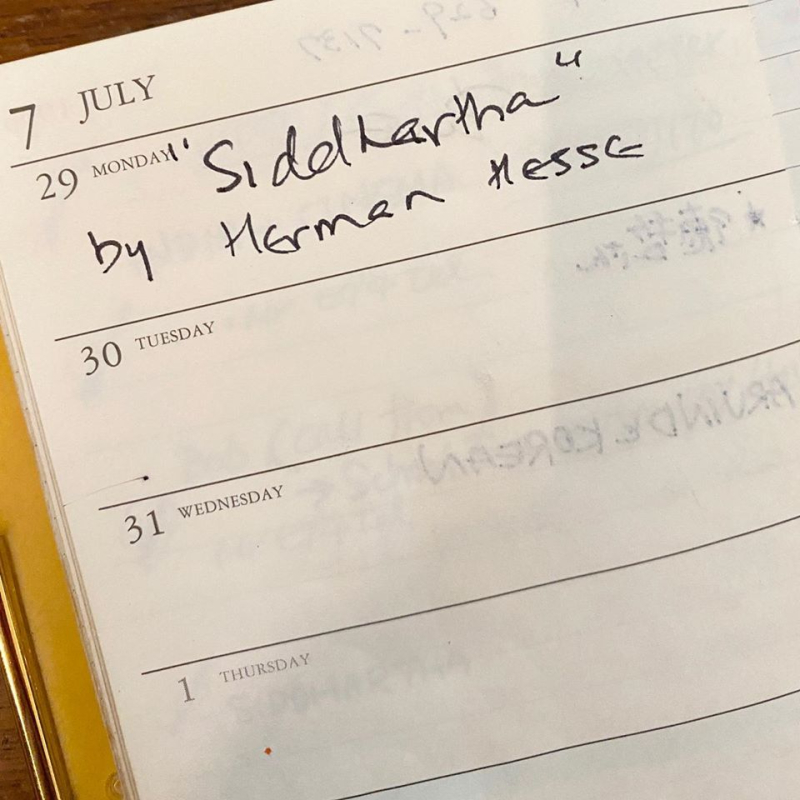 7 JULY
29 MONDAY "Siddhartha"
by Herman Hesse
30 TUESDAY
31 WEDNESDAY
1 THURSDAY